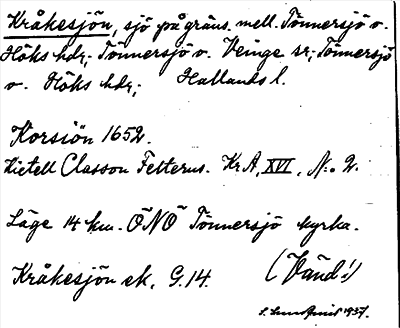 Kråkesjön, sjö på gräns. mell. Tönnersjö o.
Höks hdr; Tönnersjö o. Veinge sr; Tönnersjö
o. Höks hdr; Hallands l.
Korsiön 1652.
Kietell Classon Felterus. KrA, XVI, N:o 2.
Läge 14 km. ÖNÖ Tönnersjö kyrka.
Kråkesjön ek. G.14. (Vänd!)
1937.